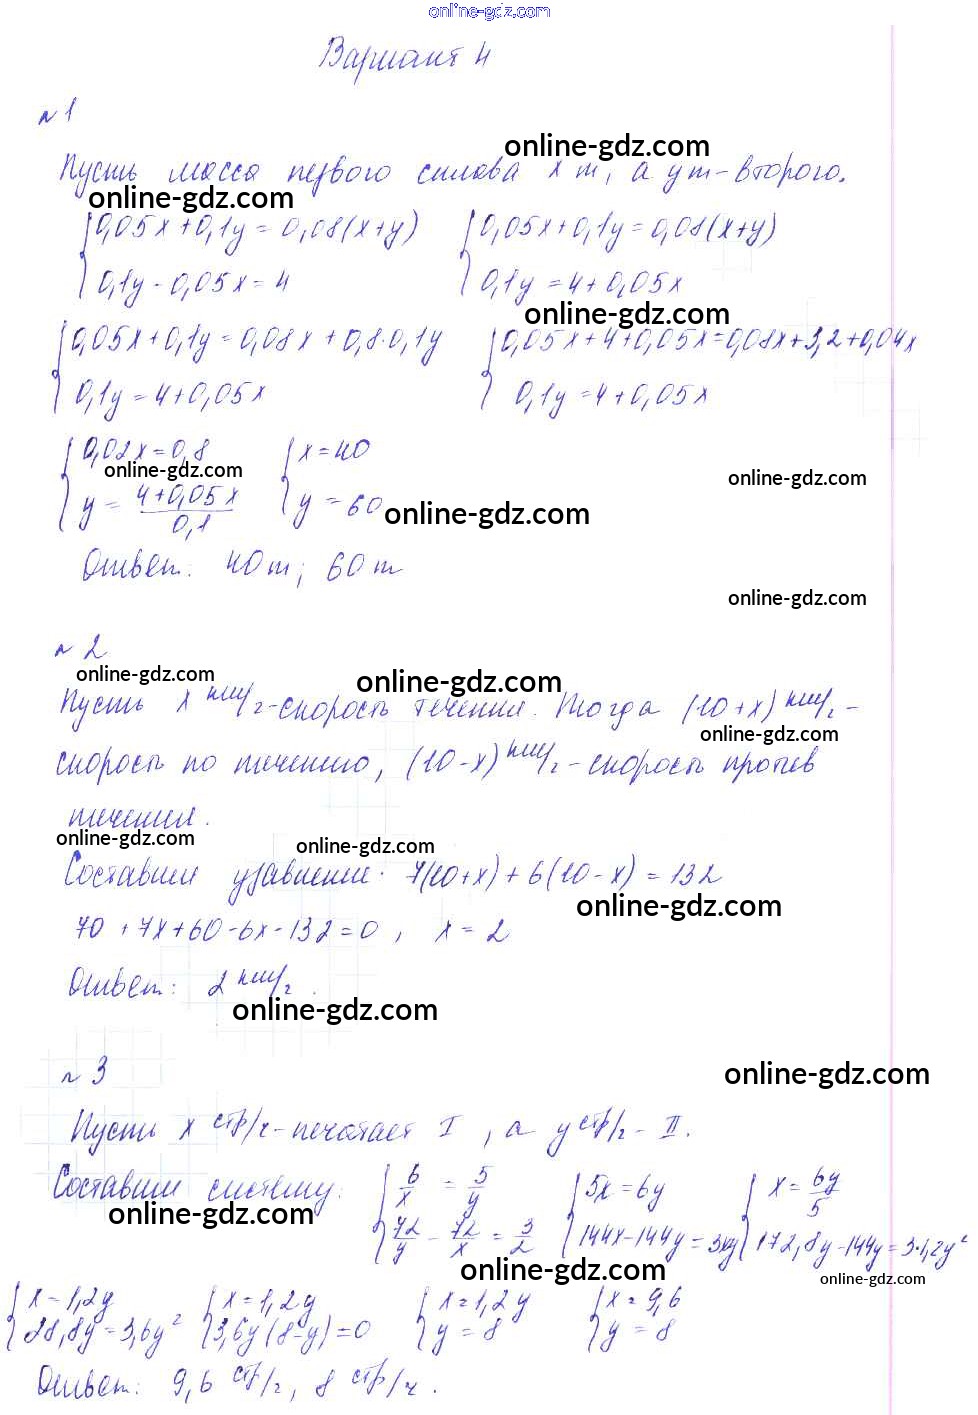 online-gdz.com
Вариант 4
№1
online-gdz.com
Пусть масса первого сплава x т, а y т-второго.
online-gdz.com
{0,05x+0,1y=0,08(x+y) {0,05x+0,1y=0,08(x+y)
0,1y-0,05x=4 0,1y=4+0,05x
online-gdz.com
{0,05x+0,1y=0,08x+0,8·0,1y {0,05x+4+0,05x=0,08x+3,2+0,04x
0,1y=4+0,05x 0,1y=4+0,05x
{0,02x=0,8 {x=40
online-gdz.com online-gdz.com
y=(4+0,05x)/0,1 y=60
online-gdz.com
Ответ: 40т; 60т
online-gdz.com
№2
online-gdz.com online-gdz.com
Пусть x км/г-скорость течения. Тогда (10+x) км/г-
online-gdz.com
скорость по течению, (10-x) км/г-скорость против
течения.
online-gdz.com online-gdz.com
Составим уравнение. 7(10+x)+6(10-x)=132
online-gdz.com
70+7x+60-6x-132=0, x=2
Ответ: 2 км/г.
online-gdz.com
№3
online-gdz.com
Пусть x стр/ч-печатает I, а y стр/г-II.
Составим систему: {6/x=5/y {5x=6y {x=6y/5
online-gdz.com
72/y-72/x=3/2 144x-144y=3xy 172,8y-144y=3·1,2y²
online-gdz.com online-gdz.com
{x=1,2y {x=1,2y {x=1,2y {x=9,6
28,8y=3,6y² 3,6y(8-y)=0 y=8 y=8
Ответ: 9,6 стр/г, 8 стр/ч.